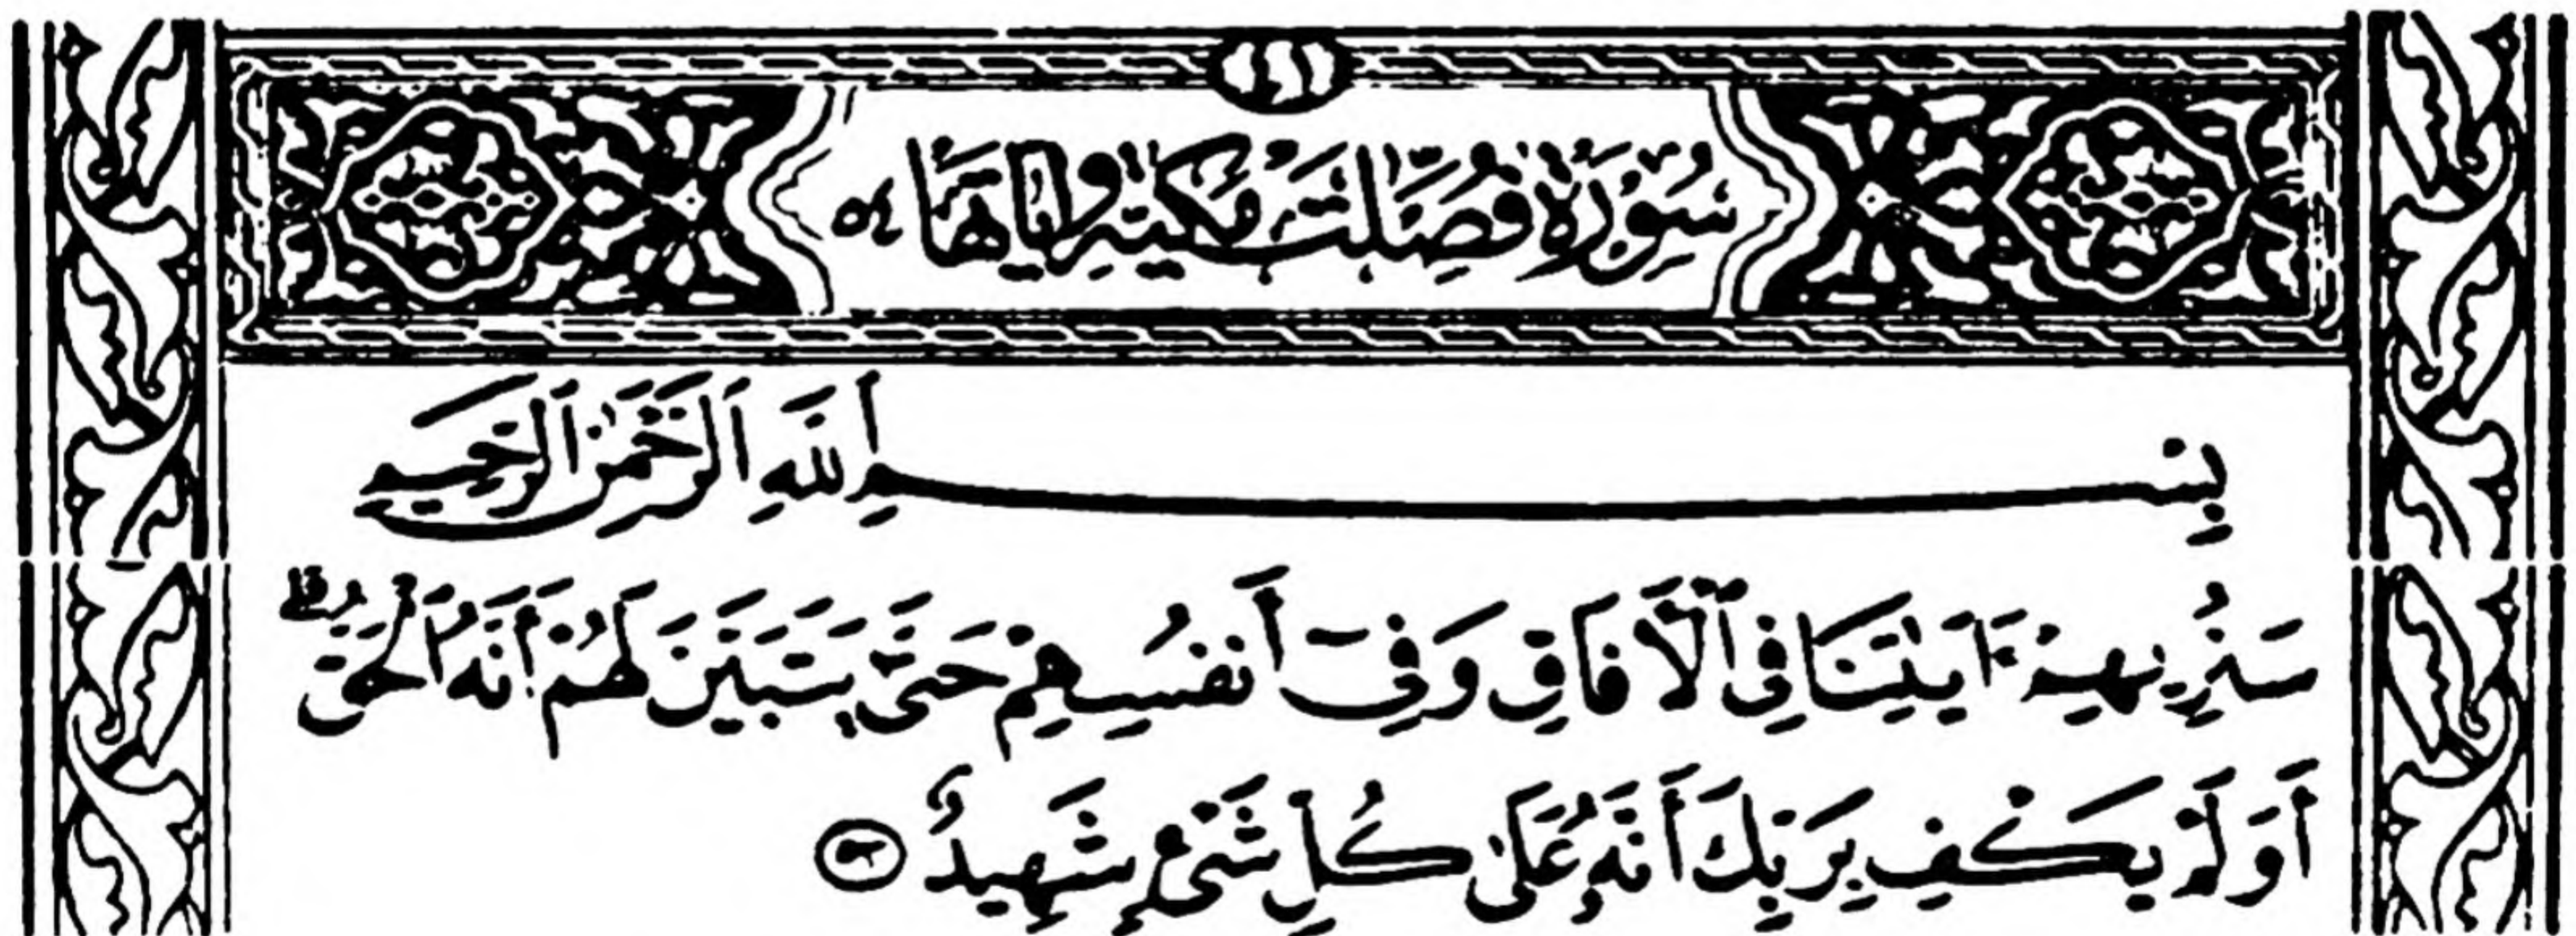 (٤١)
سُورَةُ فُصِّلَتْ مَكِّيَّة وَآيَاتُهَا ٥٤
بِسْمِ ٱللَّهِ ٱلرَّحْمَٰنِ ٱلرَّحِيمِ
سَنُرِيهِمْ ءَايَٰتِنَا فِى ٱلْءَافَاقِ وَفِىٓ أَنفُسِهِمْ حَتَّىٰ يَتَبَيَّنَ لَهُمْ أَنَّهُ ٱلْحَقُّ ۗ
أَوَلَمْ يَكْفِ بِرَبِّكَ أَنَّهُۥ عَلَىٰ كُلِّ شَىْءٍ شَهِيدٌ ٥٣